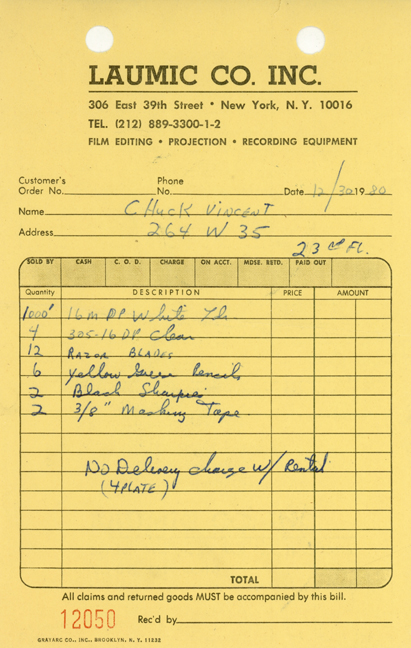 LAUMIC CO. INC.
306 East 39th Street • New York, N. Y. 10016
TEL. (212) 889-3300-1-2
FILM EDITING • PROJECTION • RECORDING EQUIPMENT
Customer's Order No. Phone No. Date 12/30 1980
Name CHUCK VINCENT
Address 264 W 35
23rd FL.
SOLD BY CASH C. O. D. CHARGE ON ACCT. MDSE. RETD. PAID OUT
Quantity DESCRIPTION PRICE AMOUNT
1000' 16m DP White
4 305-16 DP Clear
12 RAZOR BLADES
6 Yellow Pencils
2 Black Sharpies
2 3/8" Masking Tape
No Delivery charge W/ Rental
(4 PLATE)
TOTAL
All claims and returned goods MUST be accompanied by this bill.
12050 Rec'd by
GRAYARC CO., INC., BROOKLYN, N. Y. 11232